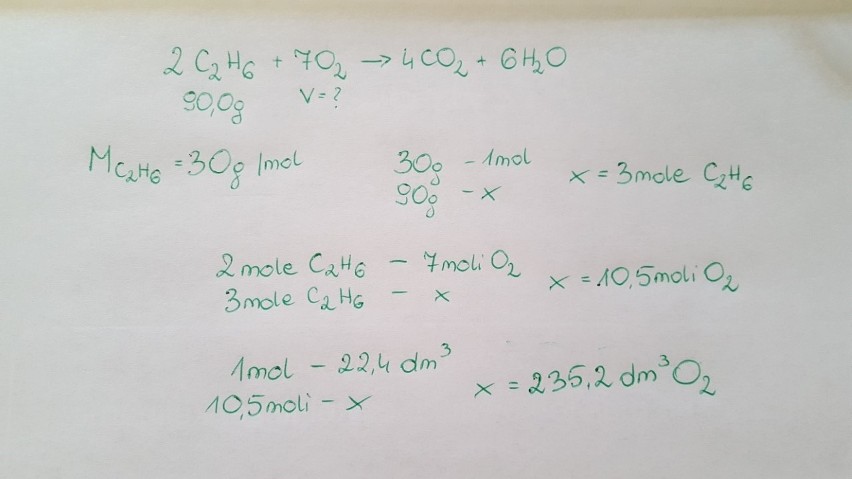 2 C₂H₆ + 7O₂ → 4CO₂ + 6H₂O
90,0g V=?
M C₂H₆ = 30g/mol 30g - 1mol
90g - x x = 3mole C₂H₆
2mole C₂H₆ - 7moli O₂
3mole C₂H₆ - x x = 10,5moli O₂
1mol - 22,4 dm³
10,5moli - x x = 235,2 dm³ O₂